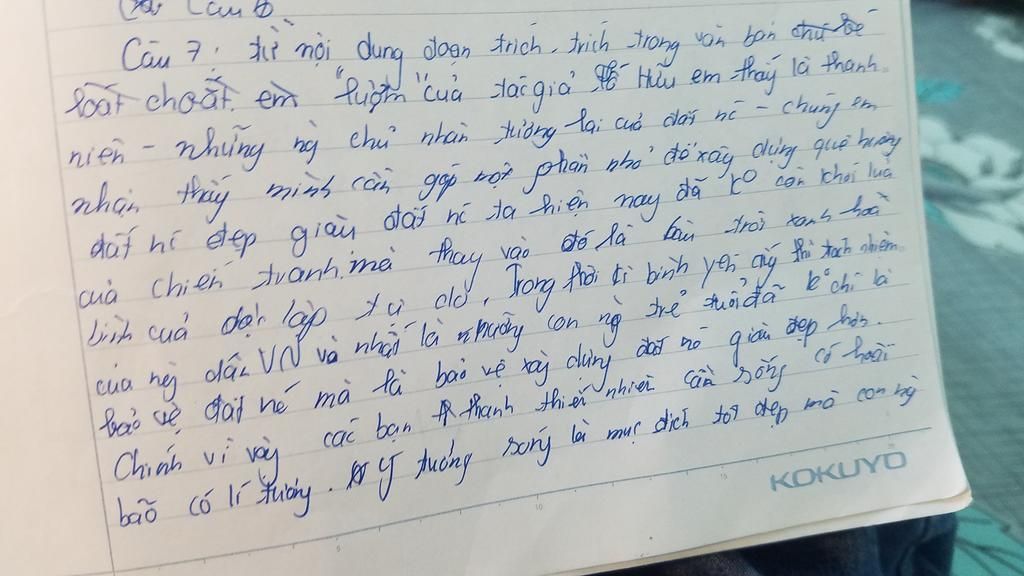 Câu 6
Câu 7: từ nội dung đoạn trích. trích trong văn bản chú bé
loắt choắt, em "Lượm" của tác giả Tố Hữu em thấy là thanh
niên - những ng chủ nhân tương lai của đất nc - chúng em
nhận thấy mình cần góp một phần nhỏ để xây dựng quê hương
đất nc đẹp giàu đất nc ta hiện nay đã ko còn khói lửa
của chiến tranh. mà thay vào đó là bầu trời xanh hoà
bình của độc lập tự do. Trong thời kì bình yên ấy thì trách nhiệm
của ng dân VN và nhất là những con ng trẻ tuổi đã ko chỉ là
bảo vệ đất nc mà là bảo vệ xây dựng đất nc giàu đẹp hơn.
Chính vì vậy các bạn thanh thiếu nhiên cần sống có hoài
bão có lí tưởng. Lý tưởng sống là mục đích tốt đẹp mà con ng
KOKUYO